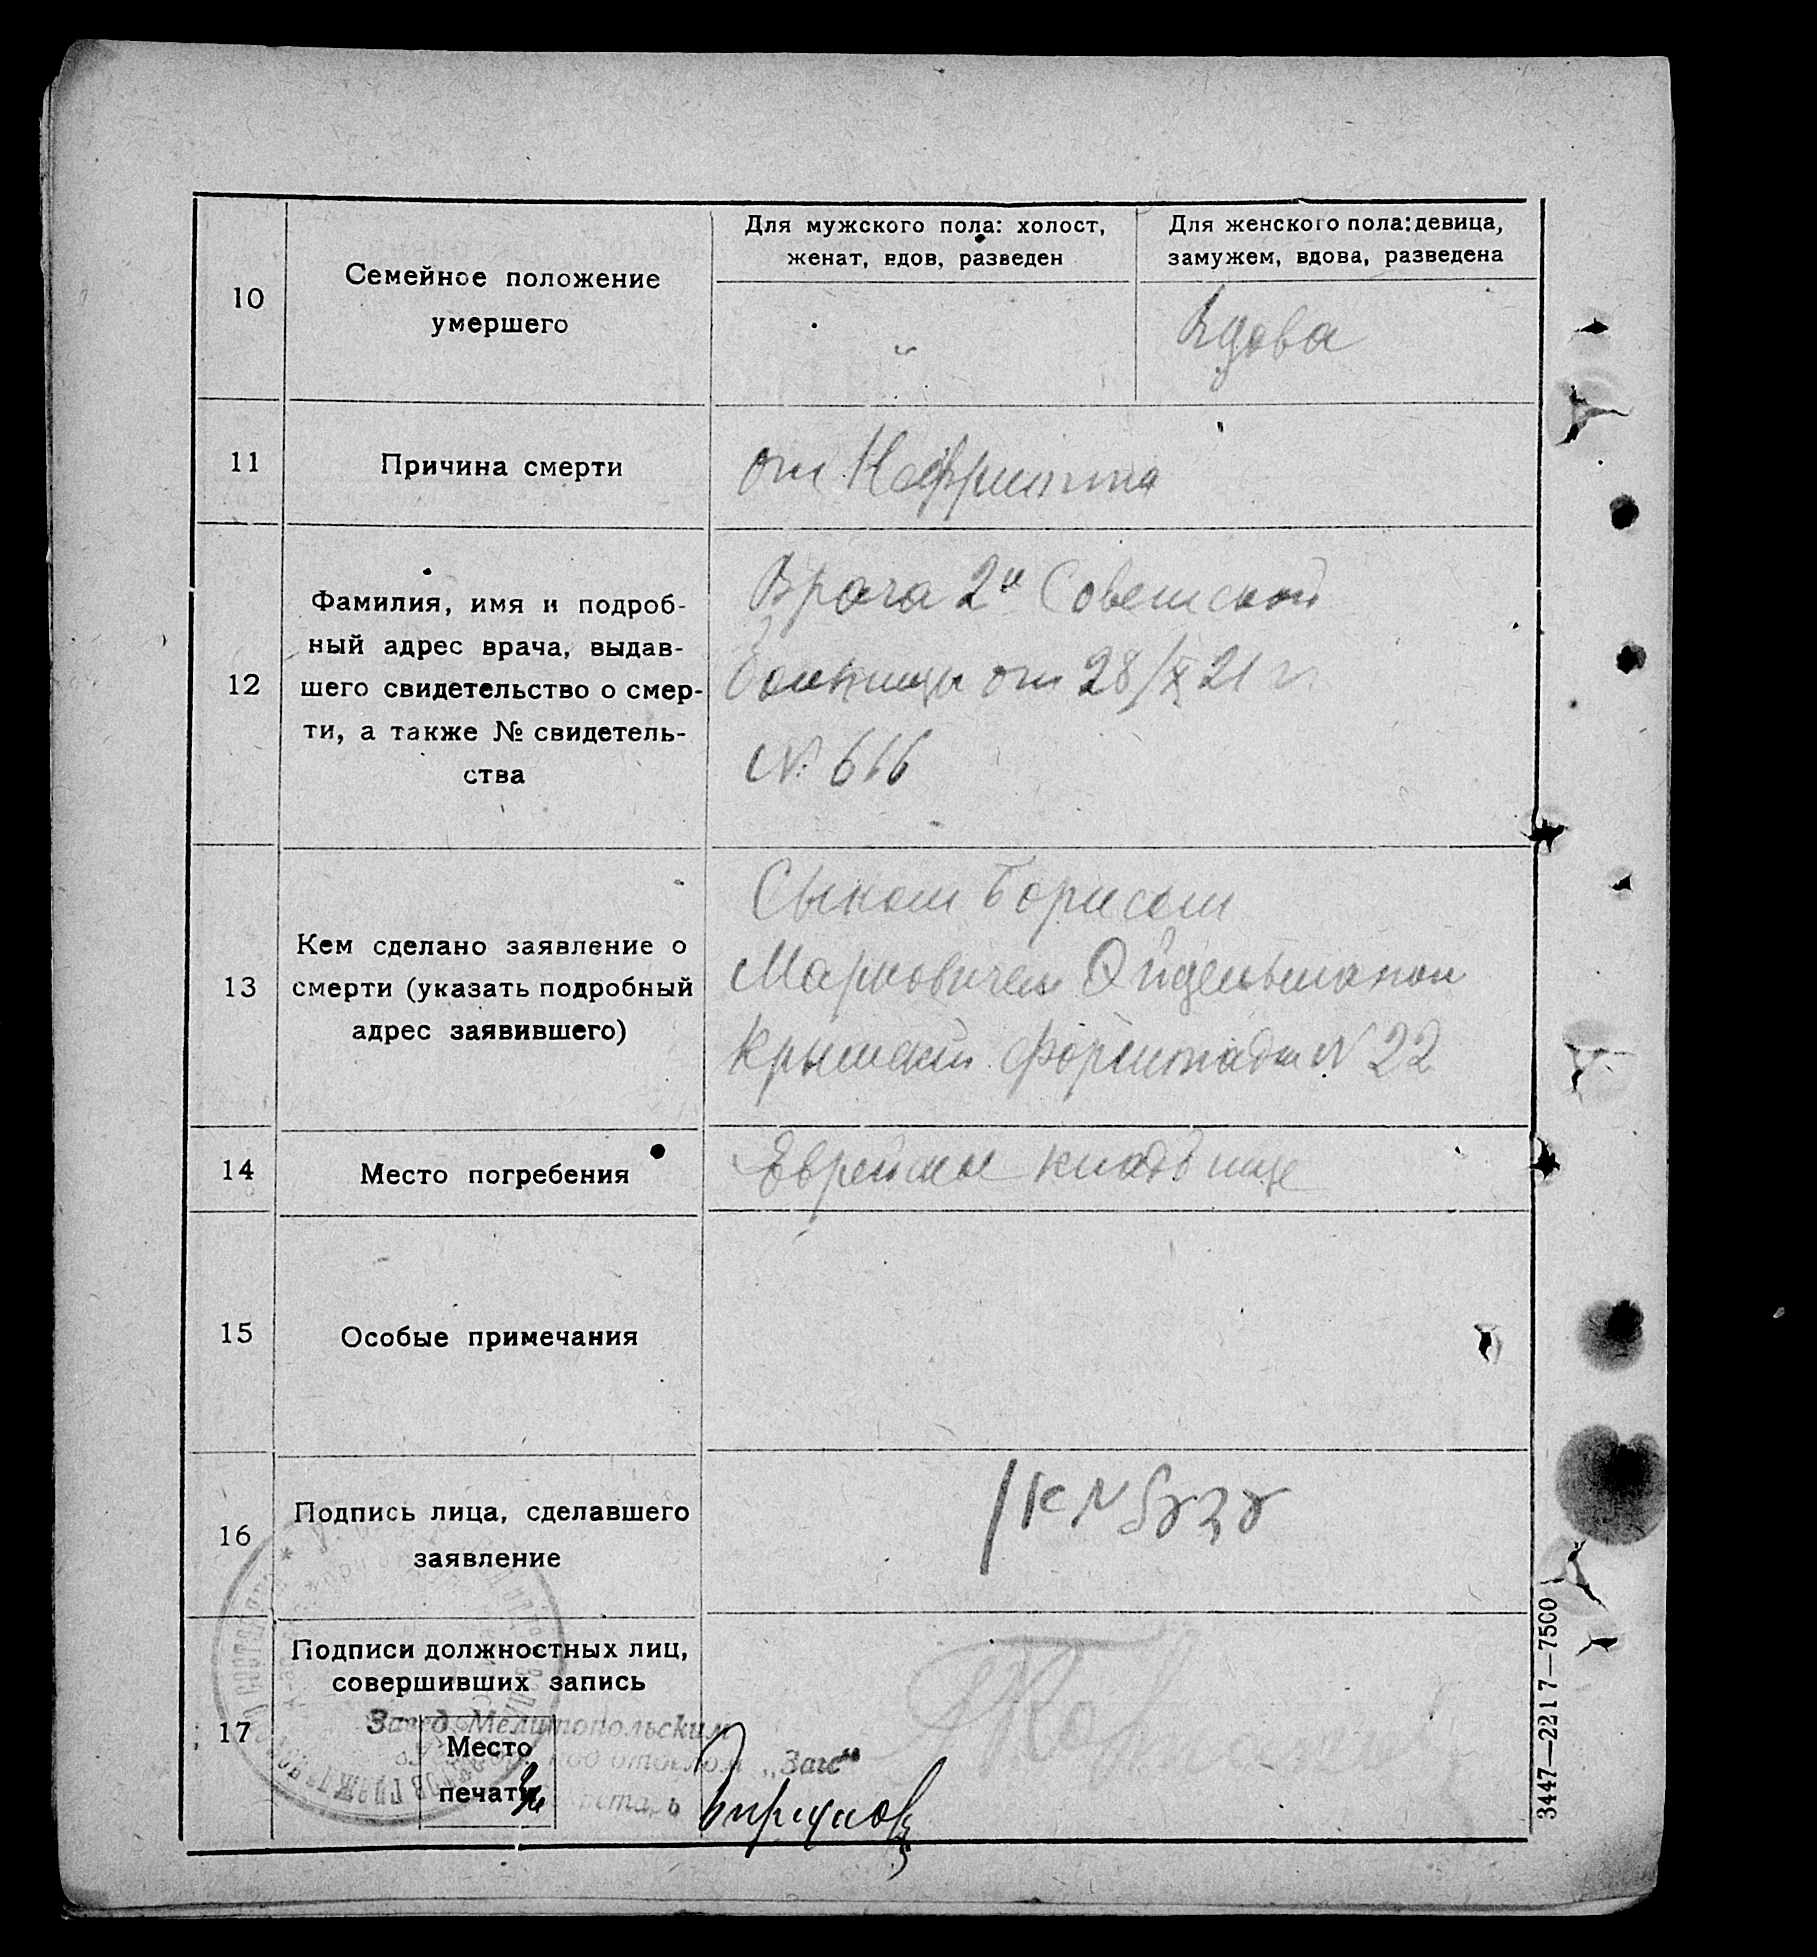 Для мужского пола: холост,
женат, вдов, разведен
Для женского пола: девица,
замужем, вдова, разведена
10
Семейное положение
умершего
"
Вдова
11
Причина смерти
от Нефрита
12
Фамилия, имя и подроб-
ный адрес врача, выдав-
шего свидетельство о смер-
ти, а также № свидетель-
ства
Врача 2й Советской
больницы от 28/X 21 г.
№ 616
13
Кем сделано заявление о
смерти (указать подробный
адрес заявившего)
Сыном Борисом
Марковичем
Крымский Форштадт № 22
14
Место погребения
Еврейское кладбище
15
Особые примечания
16
Подпись лица, сделавшего
заявление
17
Подписи должностных лиц,
совершивших запись
Завед. Мелитопольским
отделом „Загс"
Место
печати
3447—2217—7500